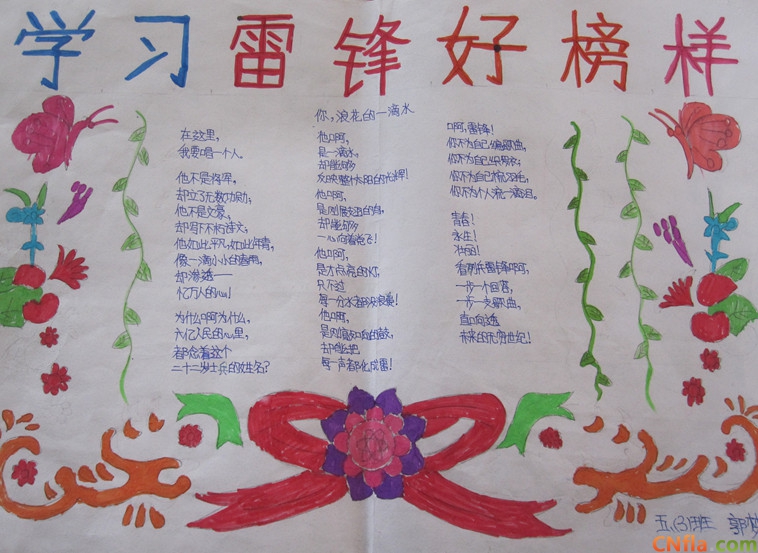 学习雷锋好榜样
你,浪花的一滴水
在这里,
我要唱一个人。
他不是将军,
却立了无数功勋;
他不是文豪,
却写下不朽诗文;
他如此平凡,如此年青,
像一滴小小的春雨,
却渗透——
亿万人的心!
为什么啊为什么,
六亿人民的心里,
都念着这个
二十二岁士兵的姓名?
他啊,
是一滴水,
却能够
反映整个太阳的光辉!
他啊,
是刚展翅的鸟,
却能够
一心向着党飞!
他啊,
是才点亮的灯,
只不过
每一分水都没浪费!
他啊,
是刚敲响的鼓,
却能把
每一声都化成雷!
啊,雷锋!
你不为自己编歌曲,
你不为自己织锦衣;
你不为自己梳羽毛,
你不为个人流一滴泪。
青春!
永生!
壮丽!
看啊,
一步一个回答,
一步一支歌曲,
直向逶
未来的无穷世纪!
五(3)班 郭
CNfla.com